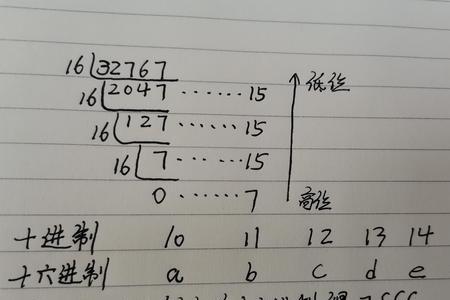 16 32767
16 2047 ······ 15 低位
16 127 ······ 15
16 7 ······ 15
0 ······ 7 高位
十进制 10 11 12 13 14
十六进制 a b c d e